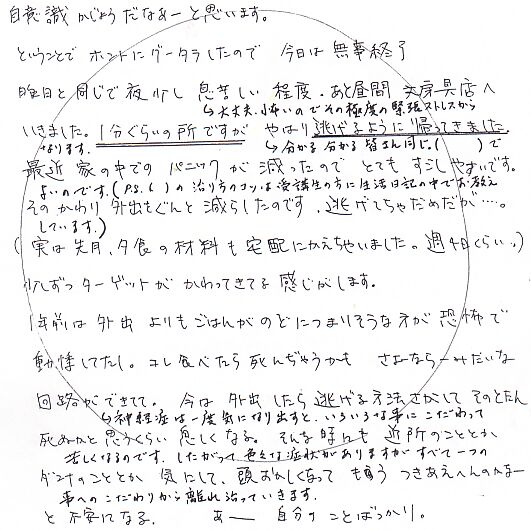 自意識かじょうだなあーと思います。
ということで ホントにグータラしたので 今日は無事終了
昨日と同じで夜少し 息苦しい 程度。あと昼間 文房具店へ
↳大丈夫、小さいのでその極度の緊張ストレスから
いきました。1分ぐらいの所ですが やはり逃げるように帰ってきました
なります。 ↳分かる分かる 皆さん同じ。( )で
最近 家の中での パニックが 減ったので とても すごしやすいです。
よいのです。( )の治り方のコツは受講生の方に生活日記の中でお教え
そのかわり 外出をぐんと 減らしたのです、逃げてちゃだめだが…。
しています。)
(実は先月、夕食の材料も宅配にかえちゃいました。週4日くらいっ)
少しずつターゲットが かわってきてる 感じがします。
1年前は外出 よりもごはんがのどにつまりそうな方が 恐怖で
動悸してたし。コレ食べたら死んぢゃうかも さよなら—みたいな
回路ができてて。 今は 外出したら逃げる方法さがして そのとたん
↳神経症は一度気になり出すと、いろいろな事にこだわって
死ぬかと思うくらい 息しくなる。そんな時にも 近所のこととか
苦しくなるのです。したがって色々な症状がありますがすべて一つの
ダンナのこととか 気にして、頭おかしくなって もう つきあえへんのかなー
事へのこだわりから離れ治っていきます。
と不安になる。 あー 自分のことばっかり。